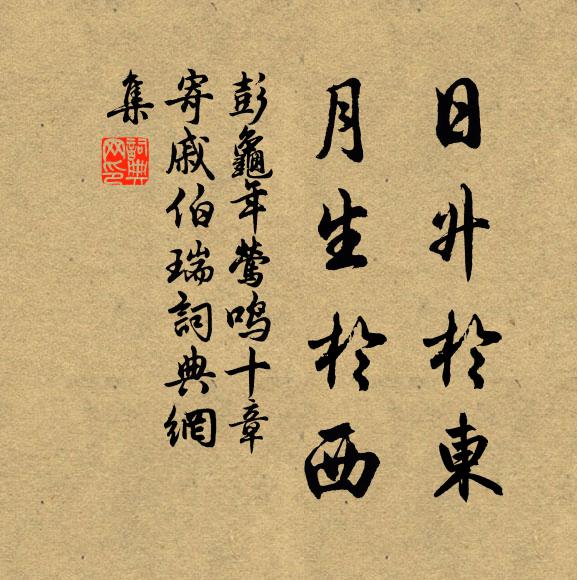 日升於東
月生於西
彭龜年鶯鳴十章
寄戚伯瑞詞典網
集
詞典網印